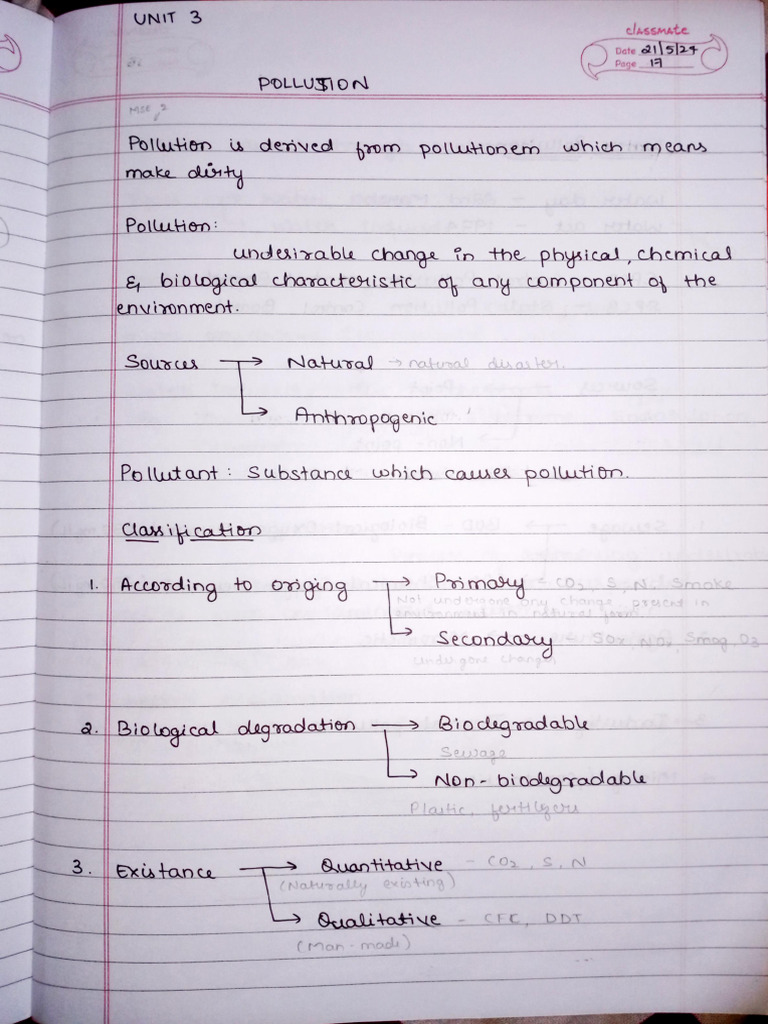 UNIT 3
classmate
Date 21/5/24
Page 17
POLLUTION
Pollution is derived from pollutionem which means
make dirty
Pollution:
undesirable change in the physical, chemical
& biological characteristic of any component of the
environment.
Sources → Natural → natural disaster.
→ Anthropogenic
Pollutant : Substance which causes pollution.
Classification
1. According to origing → Primary - CO2, S, N, Smoke
Not undergone any change, present in
environment in natural form
→ Secondary - SOx, NOx, Smog, O3
undergone changes
2. Biological degradation → Biodegradable
Sewage
→ Non-biodegradable
Plastic, fertilizers
3. Existance → Quantitative - CO2, S, N
(Naturally existing)
→ Qualitative - CFC, DDT
(Man-made)